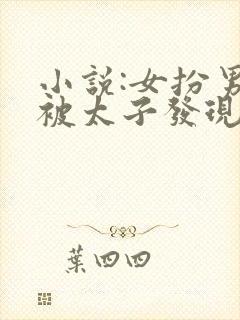 小說:女扮男
被太子發現
葉四四